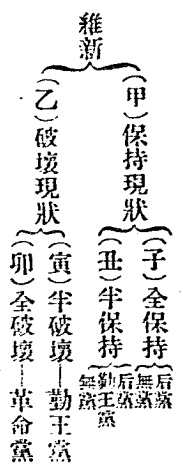 維新
(甲)保持現狀
(子)全保持
后黨
無黨
(丑)半保持
后黨
勤王黨
無黨
(乙)破壞現狀
(寅)半破壞—勤王黨
(卯)全破壞—革命黨